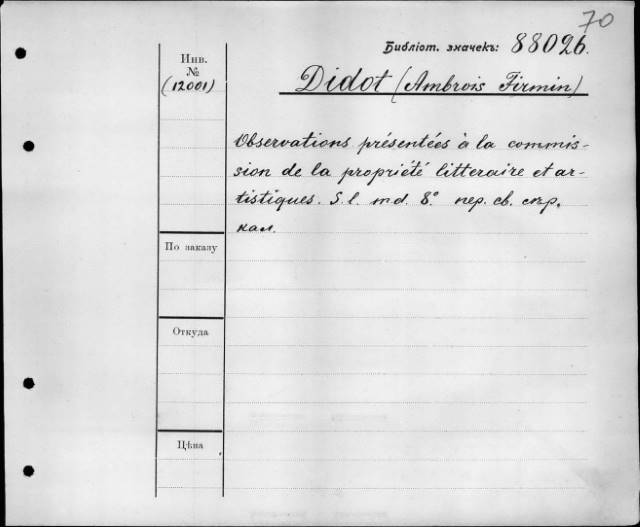 70
Библіот. значекъ: 88026.
Инв.
№
(12001)
Didot (Ambrois Firmin)
Observations présentées à la commis-
sion de la propriété litteraire et ar-
tistiques. S. l. md. 8° пер. св. стр.
кал.
По заказу
Откуда
Цѣна